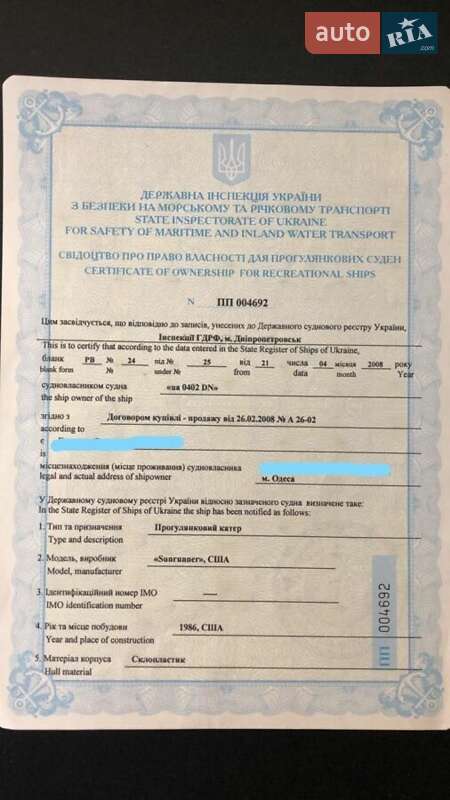 auto RIA.com
ДЕРЖАВНА ІНСПЕКЦІЯ УКРАЇНИ
З БЕЗПЕКИ НА МОРСЬКОМУ ТА РІЧКОВОМУ ТРАНСПОРТІ
STATE INSPECTORATE OF UKRAINE
FOR SAFETY OF MARITIME AND INLAND WATER TRANSPORT
СВІДОЦТВО ПРО ПРАВО ВЛАСНОСТІ ДЛЯ ПРОГУЛЯНКОВИХ СУДЕН
CERTIFICATE OF OWNERSHIP FOR RECREATIONAL SHIPS
N ПП 004692
Цим засвідчується, що відповідно до записів, унесених до Державного суднового реєстру України,
Інспекції ГДРФ, м. Дніпропетровськ
This is to certify that according to the data entered in the State Register of Ships of Ukraine,
бланк РВ № 24 під № 25 від 21 числа 04 місяця 2008 року
blank form № under № from date month Year
судновласником судна «ua 0402 DN»
the ship owner of the ship
згідно з Договором купівлі - продажу від 26.02.2008 № А 26-02
according to
є
is
місцезнаходження (місце проживання) судновласника
legal and actual address of shipowner м. Одеса
У Державному судновому реєстрі України відносно зазначеного судна визначене таке:
In the State Register of Ships of Ukraine the ship has been notified as follows:
1. Тип та призначення Прогулянковий катер
Type and description
2. Модель, виробник «Sunrunner», США
Model, manufacturer
3. Ідентифікаційний номер ІМО ----
IMO identification number
4. Рік та місце побудови 1986, США
Year and place of construction
5. Матеріал корпуса Склопластик
Hull material
ПП 004692